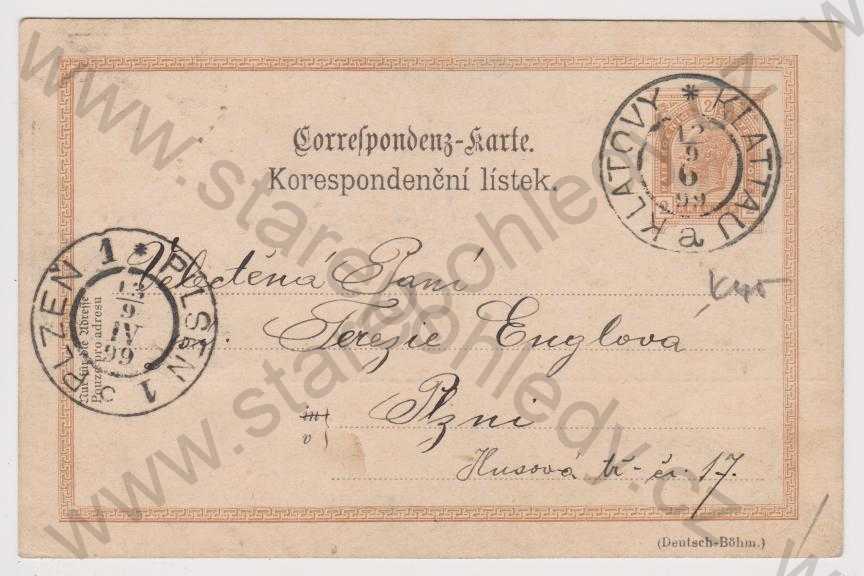 Correspondenz-Karte.
Korespondenční lístek.
KLATOVY * KLATTAU
12
9
6
99
a
PLZEŇ 1 * PILSEN 1
12
9
IV
99
c
Nur für die Adresse
Pouze pro adresu
Velectěná Paní
Terezie Englová
in
v
Plzni
Husová tř. čís. 17.
(Deutsch-Böhm.)
www.starepohledy.cz